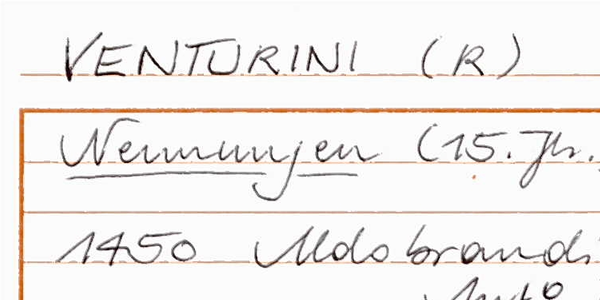 VENTURINI (R)
Nennungen (15. Jh.
1450 Aldobrandi